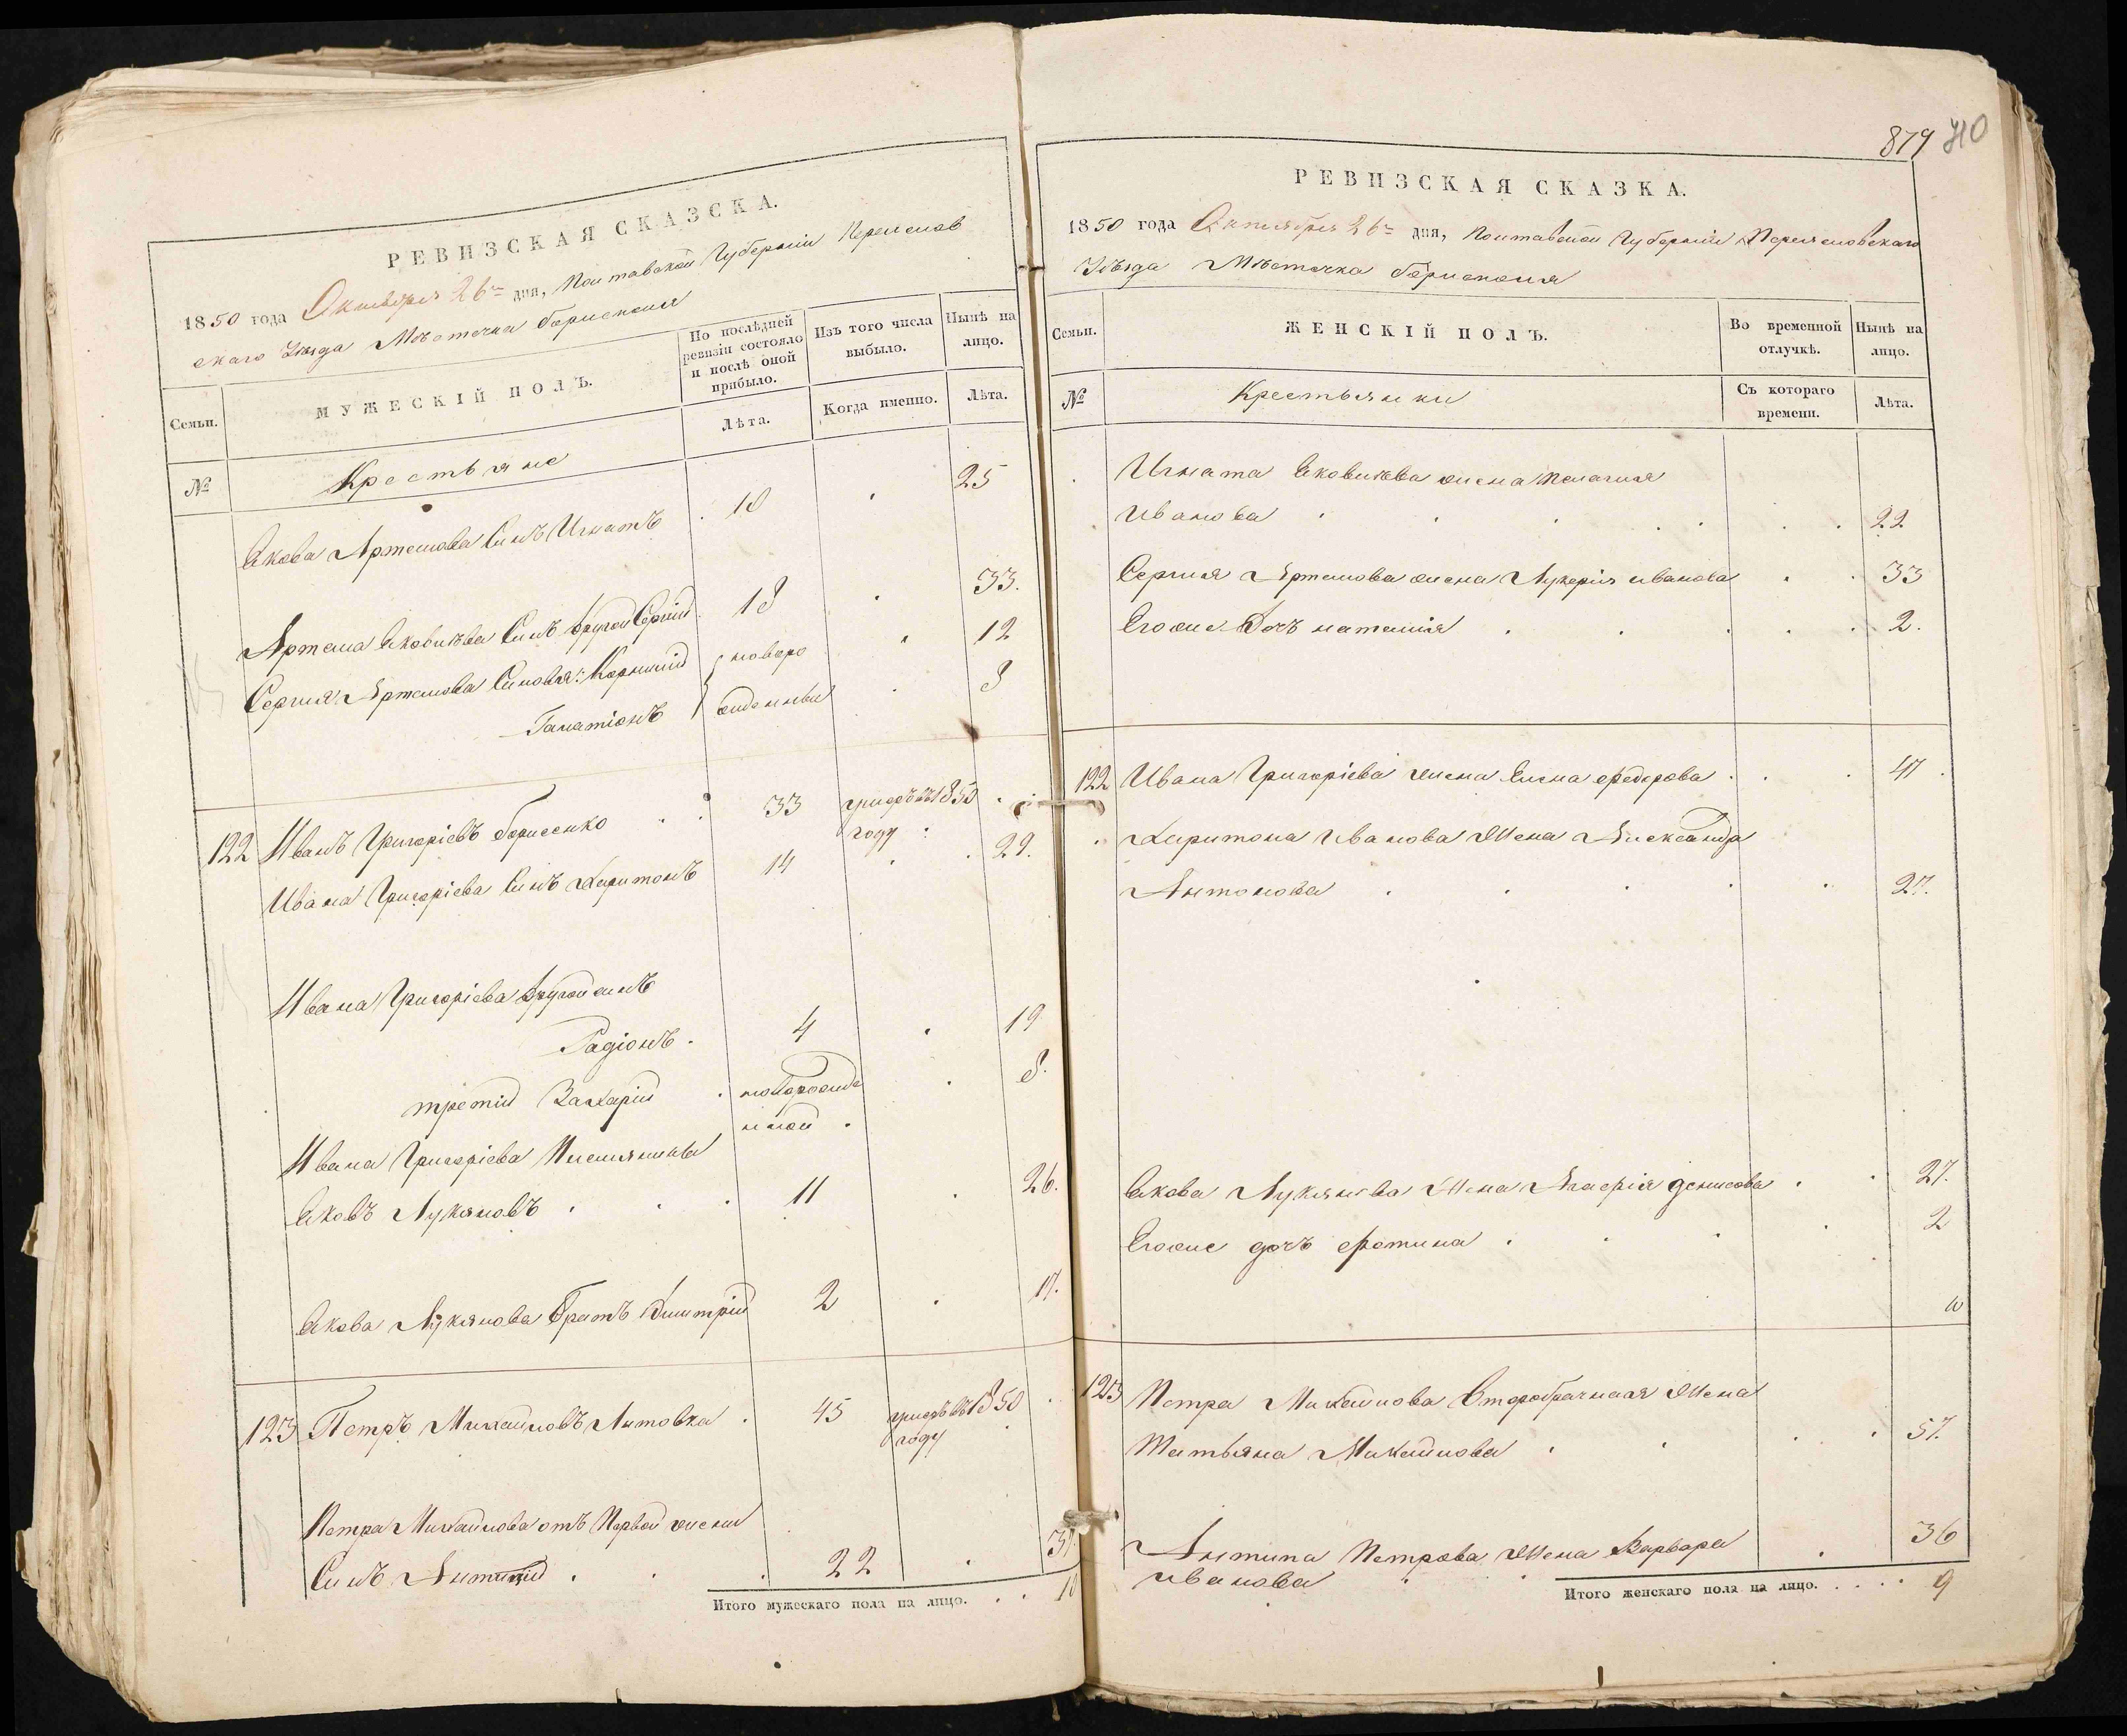 РЕВИЗСКАЯ СКАЗСКА.
1850 года Октября 26го дня, Полтавской Губерніи Переяслов
скаго Уѣзда Мѣстечка Борисполя
Семьи.
МУЖЕСКІЙ ПОЛЪ.
По послѣдней ревизіи состояло и послѣ оной прибыло.
Изъ того числа выбыло.
Нынѣ на лицо.
Лѣта.
Когда именно.
Лѣта.
№
Крестьяне
Якова Артемова Синъ Игнатъ . 10 . 25
Артема Яковлѣва Синъ другой Сергій . 18 . 33.
Сергия Артемова Синовля: Корнилій новоро . 12
Галатіонъ жденные . 8
122 Иванъ Григоріевъ Борисенко . . 33 умеръ въ 1850
году .
Ивана Григоріева Синъ Харитонъ 14 . . 29.
Ивана Григоріева другой синъ
Радіонъ . 4 . 19
третій Захарій . новорожде . 8.
нной .
Ивана Григоріева Племянники
Яковъ Лукяновъ . . . 11 . 26.
Якова Лукянова Братъ Дмитрій 2 . 17.
123 Петръ Михайловъ Литовка . 45 умеръ въ 1850 .
году
Петра Михайлова отъ Первой жени
Синъ Антипій . . . 22 . 37.
Итого мужескаго пола на лицо. . . 10
879 710
РЕВИЗСКАЯ СКАЗКА.
1850 года Октября 26го дня, Полтавской Губерніи Переясловскаго
Уѣзда Мѣстечка Борисполя
Семьи.
ЖЕНСКІЙ ПОЛЪ.
Во временной отлучкѣ.
Нынѣ на лицо.
№
Крестьянки
Съ котораго времени.
Лѣта.
Игната Яковлѣва жена Пелагия
Иванова . . . . . . . 22
Сергия Артемова жена Лукерія иванова . . 33
Егоже Дочъ наталія . . . . . 2.
122 Ивана Григоріева жена Елена федорова . . . 47 .
Харитона Иванова Жена Александра
Антонова . . . . . 27.
Якова Лукянова Жена Агаерія денисова . . 27.
Егоже дочъ фотина . . . . 2
123 Петра Михайлова Второбрачная Жена
Татьяна Михайлова . . . . 57.
Антипа Петрова Жена Варвара . 36
иванова . .
Итого женскаго пола на лицо. . . . . 9